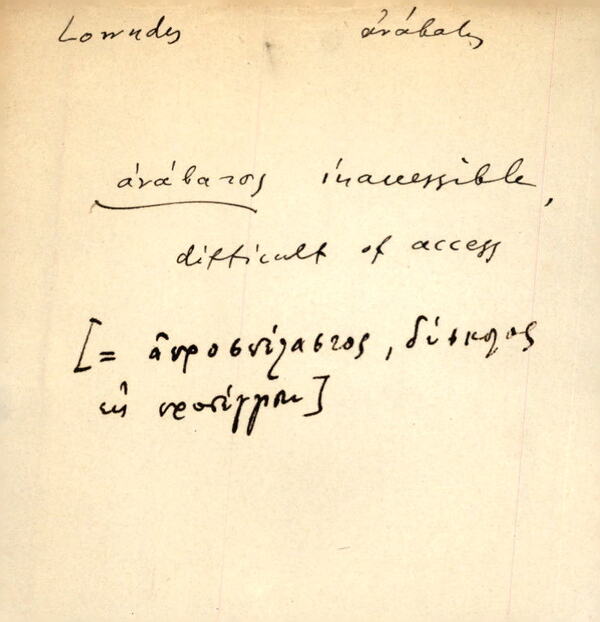 Lowndes ἀνάβατος
ἀνάβατος inaccessible,
difficult of access
[= ἀπροσπέλαστος, δύσκολος
εἰς προσέγγισιν]